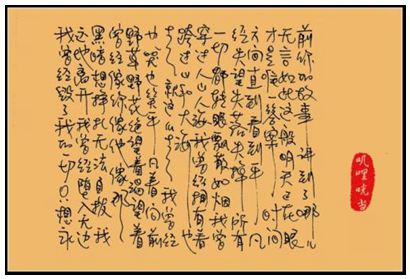 我曾经毁了我的一切只想永
远地离开我曾经堕入无边
黑暗想挣扎无法自拔我
曾经像你像他像那
野草野花绝望着渴望着
也哭也笑平凡着向前
走就这么走我曾经
跨过山和大海也
穿过人山人海我曾经拥有着
一切都转眼飘散如烟我曾
经失望失落失掉所有
方向直到看到平凡
才是唯一答案时间
无言如此这般明天已在眼
前你的故事讲到了哪儿